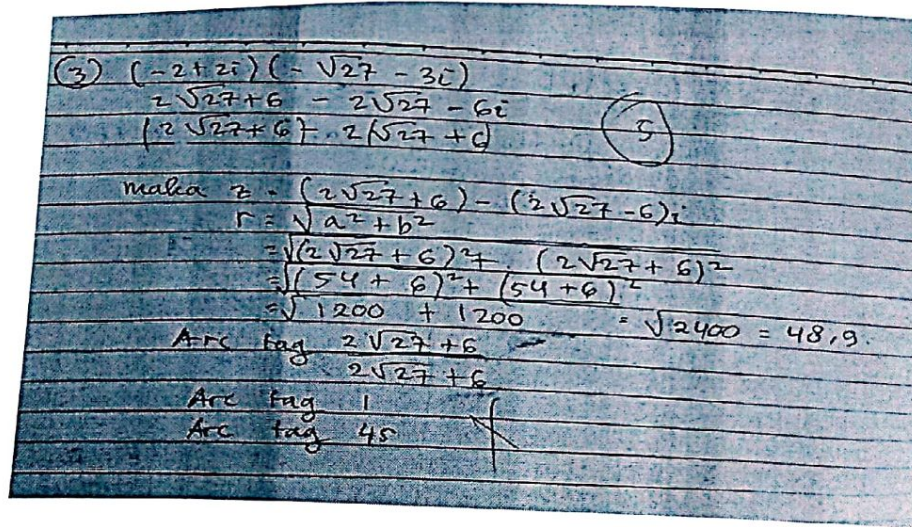 ③ (-2+2i) (-√27 - 3i)
2√27+6 - 2√27 - 6i
(2√27+6) - 2(√27+6)
5
maka z = (2√27+6) - (2√27-6)i
r = √a²+b²
=√(2√27+6)²+ (2√27+6)²
=√(54+6)²+(54+6)²
=√1200 + 1200 = √2400 = 48,9.
Arc tag 2√27+6
2√27+6
Arc tag 1
Arc tag 45